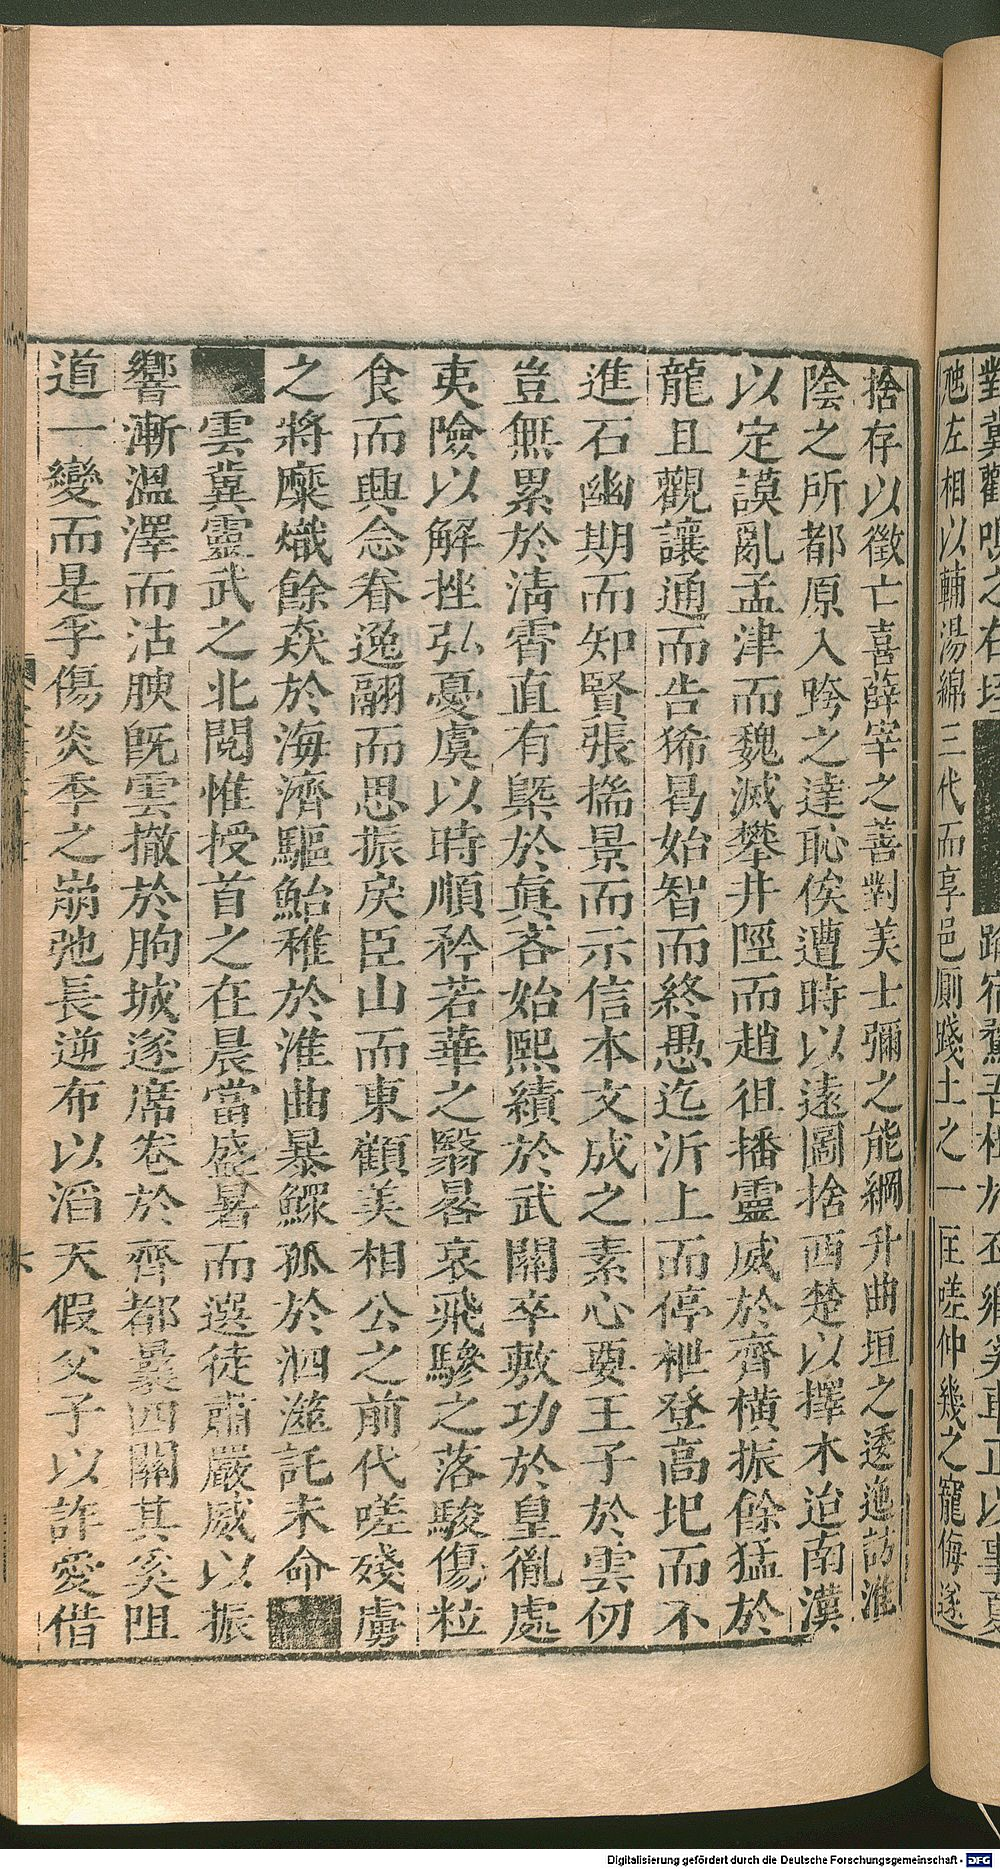 捨存以徵亡喜薛宰之善對美士彌之能綱升曲垣之逶迤訪淮
陰之所都原入跨之達恥俟遭時以遠圖捨西楚以擇木迨南漢
以定謨亂孟津而魏滅攀井陘而趙徂播靈威於齊橫振餘猛於
龍且觀讓通而告狶曷始智而終愚迄沂上而停枻登高圯而不
進石幽期而知賢張揣景而示信本文成之素心要王子於雲仞
豈無累於清霄直有槩於眞吝始熙績於武關卒敷功於皇胤處
夷險以解挫弘憂虞以時順矜若華之翳晷哀飛驂之落駿傷粒
食而興念眷逸翮而思振戾臣山而東顧美相公之前代嗟殘虜
之將糜熾餘猋於海濟驅鮐稚於淮曲暴鰥孤於泗澨託末命
雲冀靈武之北閱惟授首之在晨當盛暑而選徒肅嚴威以振
響漸溫澤而沾腴旣雲撤於朐城遂席卷於齊都曩四關其奚阻
道一變而是孚傷炎季之崩弛長逆布以滔天假父子以詐愛借
對冀觀
之右
路宿
吾
丕鄉奚車正以事夏
虺左相以輔湯綿三代而享邑厠踐土之一匡嗟仲幾之寵侮遂
Digitalisierung gefördert durch die Deutsche Forschungsgemeinschaft - DFG